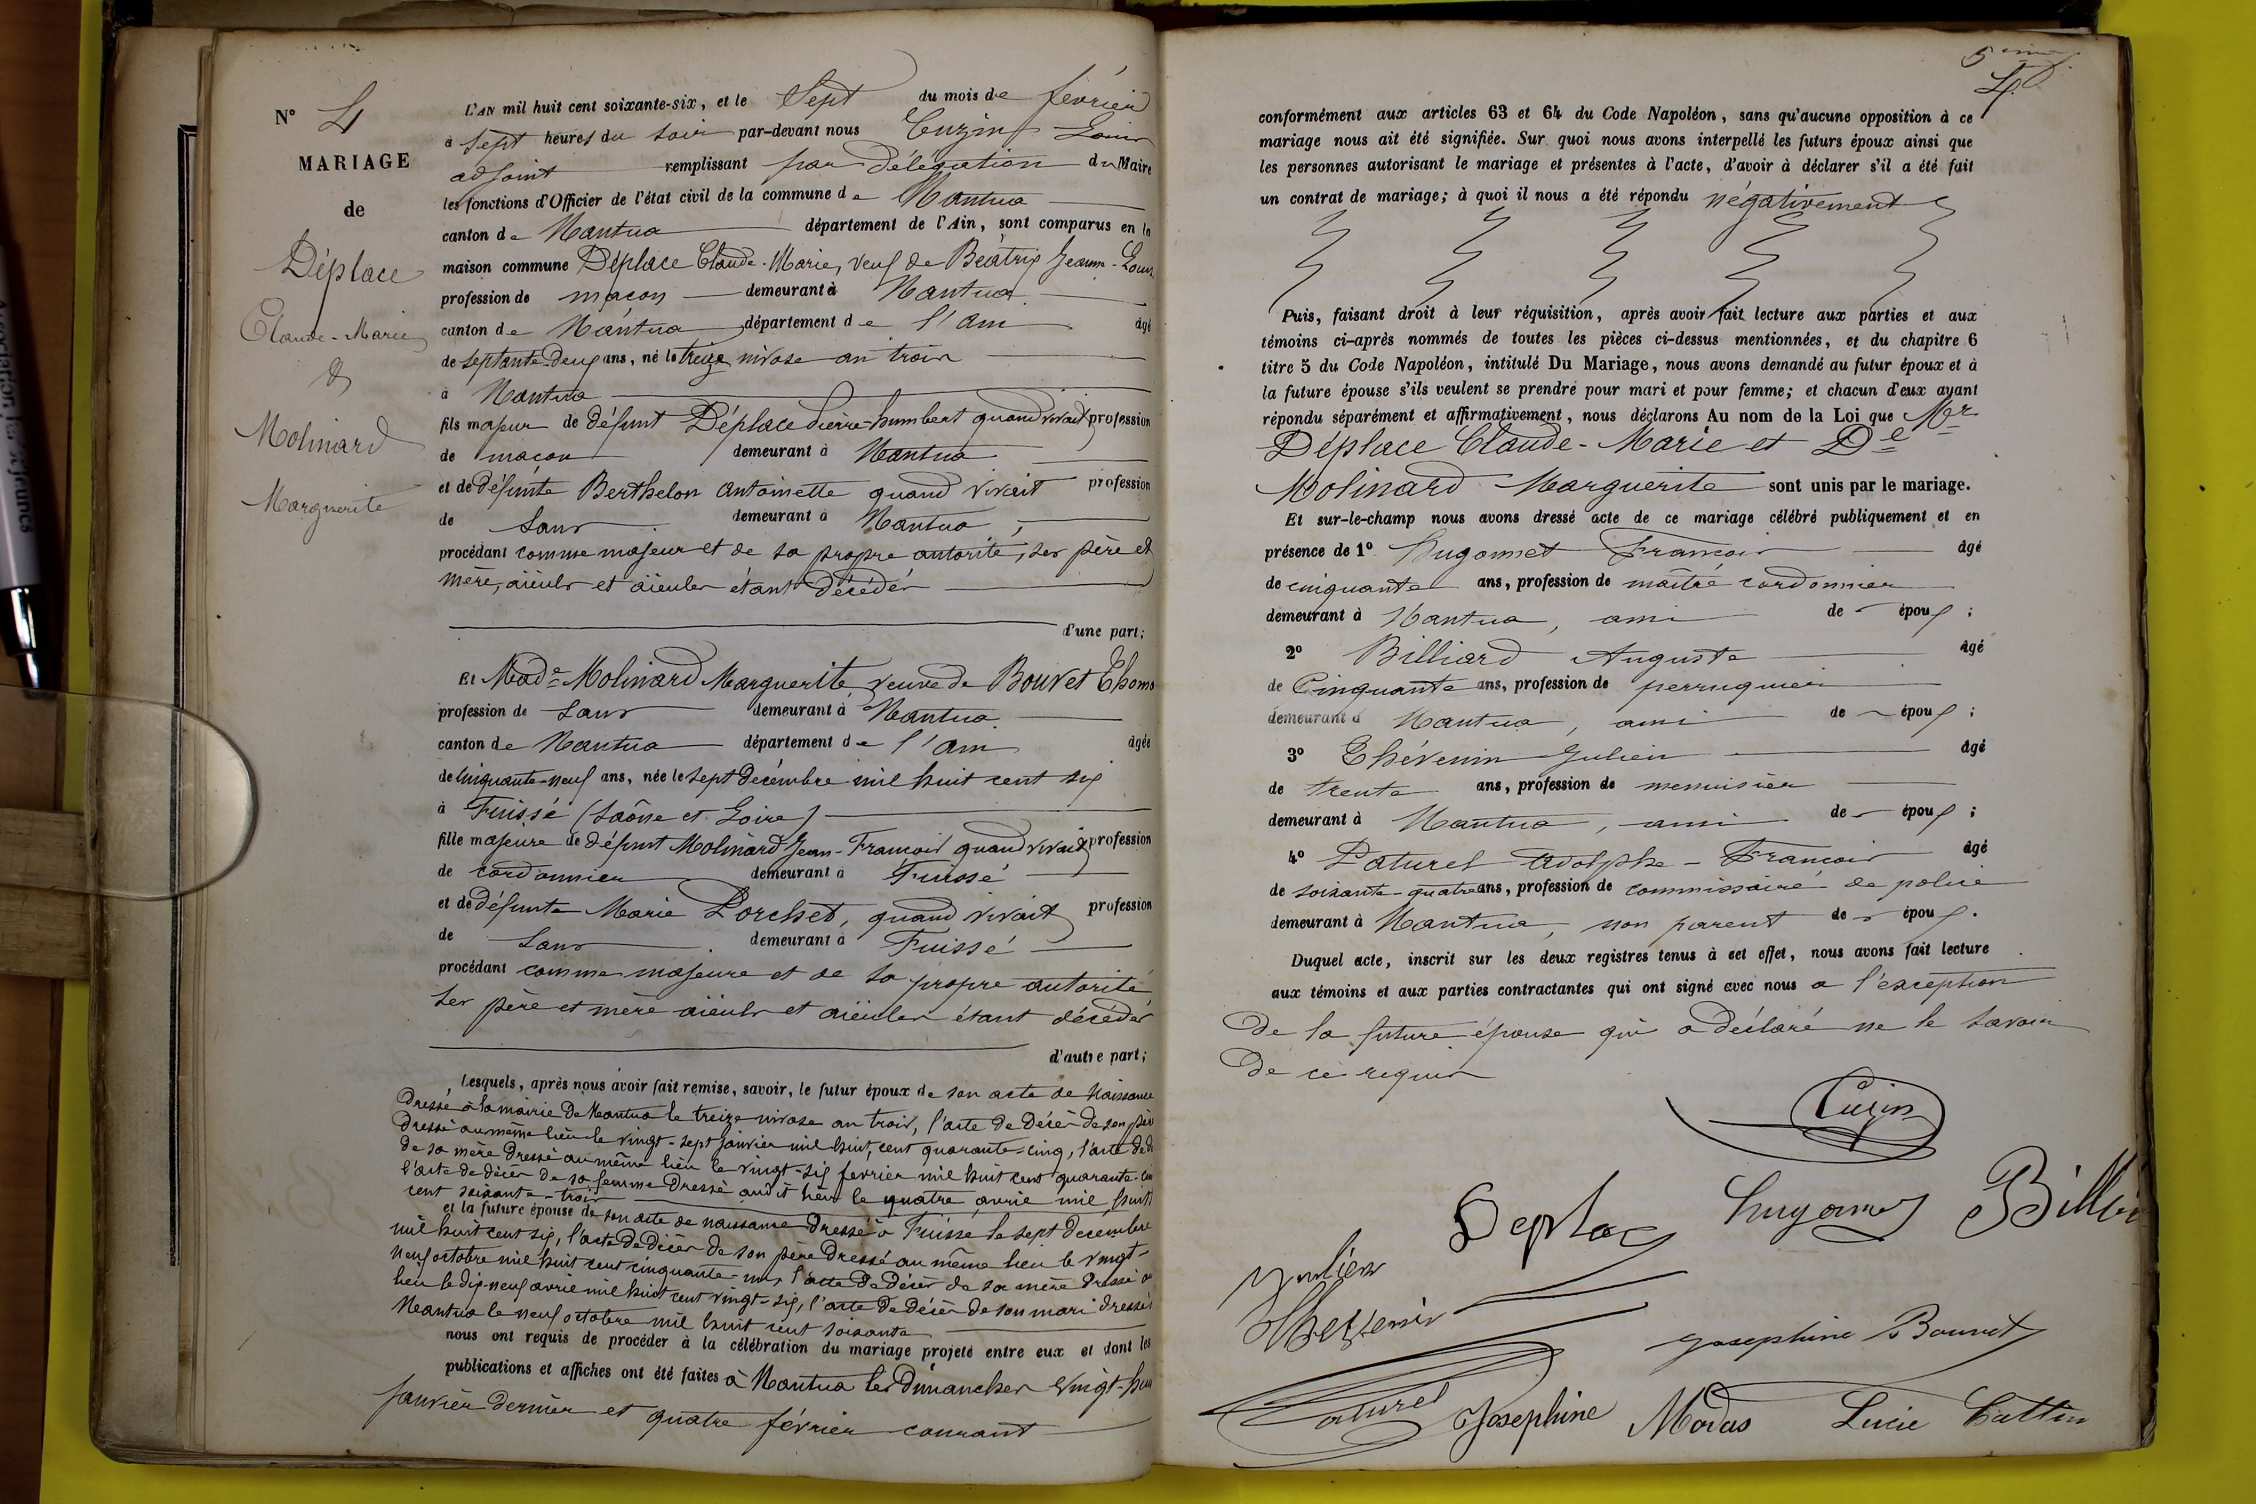 N° 4
MARIAGE
de
Déplace
Claude-Marie
&
Molinard
Marguerite
L'AN mil huit cent soixante-six, et le Sept du mois de février
à sept heures du soir par-devant nous Cuzin Louis
adjoint remplissant par délégation du Maire
les fonctions d'Officier de l'état civil de la commune de Nantua
canton de Nantua département de l'Ain, sont comparus en la
maison commune Déplace Claude-Marie, veuf de Béatrix Jeanne-Louise
profession de maçon demeurant à Nantua
canton de Nantua département de l'Ain âgé
de septante-deux ans, né le treize nivose an trois
à Nantua
fils majeur de défunt Déplace Pierre-humbert quand vivait profession
de maçon demeurant à Nantua
et de défunte Berthelon Antoinette quand vivait profession
de sans demeurant à Nantua,
procédant comme majeur et de sa propre autorité, ses père et
mère, aïeuls et aïeules étant décédés
d'une part;
Et Made Molinard Marguerite, veuve de Bouvet Thomas
profession de sans demeurant à Nantua
canton de Nantua département de l'Ain âgée
de cinquante-neuf ans, née le sept décembre mil huit cent six
à Fuissé (Saône et Loire)
fille majeure de défunt Molinard Jean-François quand vivait profession
de cordonnier demeurant à Fuissé
et de défunte Marie Porchet, quand vivait profession
de sans demeurant à Fuissé
procédant comme majeure et de sa propre autorité
ses père et mère aïeuls et aïeules étant décédés
d'autre part;
Lesquels, après nous avoir fait remise, savoir, le futur époux de son acte de Naissance
dressé à la mairie de Nantua le treize nivose an trois, l'acte de décès de son père
dressé au même lieu le vingt-sept janvier mil huit cent quarante-cinq, l'acte de
de sa mère dressé au même lieu le vingt-six février mil huit cent quarante-
l'acte de décès de sa femme dressé audit lieu le quatre avril mil huit
cent soixante-trois
et la future épouse de son acte de naissance dressé à Fuissé le sept décembre
mil huit cent six, l'acte de décès de son père dressé au même lieu le vingt-
neuf octobre mil huit cent cinquante-un, l'acte de décès de sa mère dressé au
lieu le dix-neuf avril mil huit cent vingt-six, l'acte de décès de son mari dressé à
Nantua le neuf octobre mil huit cent soixante
nous ont requis de procéder à la célébration du mariage projeté entre eux et dont les
publications et affiches ont été faites à Nantua les dimanches vingt-huit
janvier dernier et quatre février courant
4.
conformément aux articles 63 et 64 du Code Napoléon, sans qu'aucune opposition à ce
mariage nous ait été signifiée. Sur quoi nous avons interpellé les futurs époux ainsi que
les personnes autorisant le mariage et présentes à l'acte, d'avoir à déclarer s'il a été fait
un contrat de mariage; à quoi il nous a été répondu négativement
Puis, faisant droit à leur réquisition, après avoir fait lecture aux parties et aux
témoins ci-après nommés de toutes les pièces ci-dessus mentionnées, et du chapitre 6
titre 5 du Code Napoléon, intitulé Du Mariage, nous avons demandé au futur époux et à
la future épouse s'ils veulent se prendre pour mari et pour femme; et chacun d'eux ayant
répondu séparément et affirmativement, nous déclarons Au nom de la Loi que Mr
Déplace Claude-Marie et De
Molinard Marguerite sont unis par le mariage.
Et sur-le-champ nous avons dressé acte de ce mariage célébré publiquement et en
présence de 1° Hugonnet François âgé
de cinquante ans, profession de maître cordonnier
demeurant à Nantua, ami de époux;
2° Billiard Auguste âgé
de Cinquante ans, profession de perruquier
demeurant à Nantua, ami de époux;
3° Thévenin Julien âgé
de trente ans, profession de menuisier
demeurant à Nantua, ami de époux;
4° Paturel Adolphe-François âgé
de soixante-quatre ans, profession de commissaire de police
demeurant à Nantua, non parent de époux.
Duquel acte, inscrit sur les deux registres tenus à cet effet, nous avons fait lecture
aux témoins et aux parties contractantes qui ont signé avec nous à l'exception
de la future épouse qui a déclaré ne le savoir
de ce requis
Cuzin
Deplac Hugonnet Billi
Julien
Thevenin
Josephine Bouvet
Paturel Josephine Modas Lucie Cattin